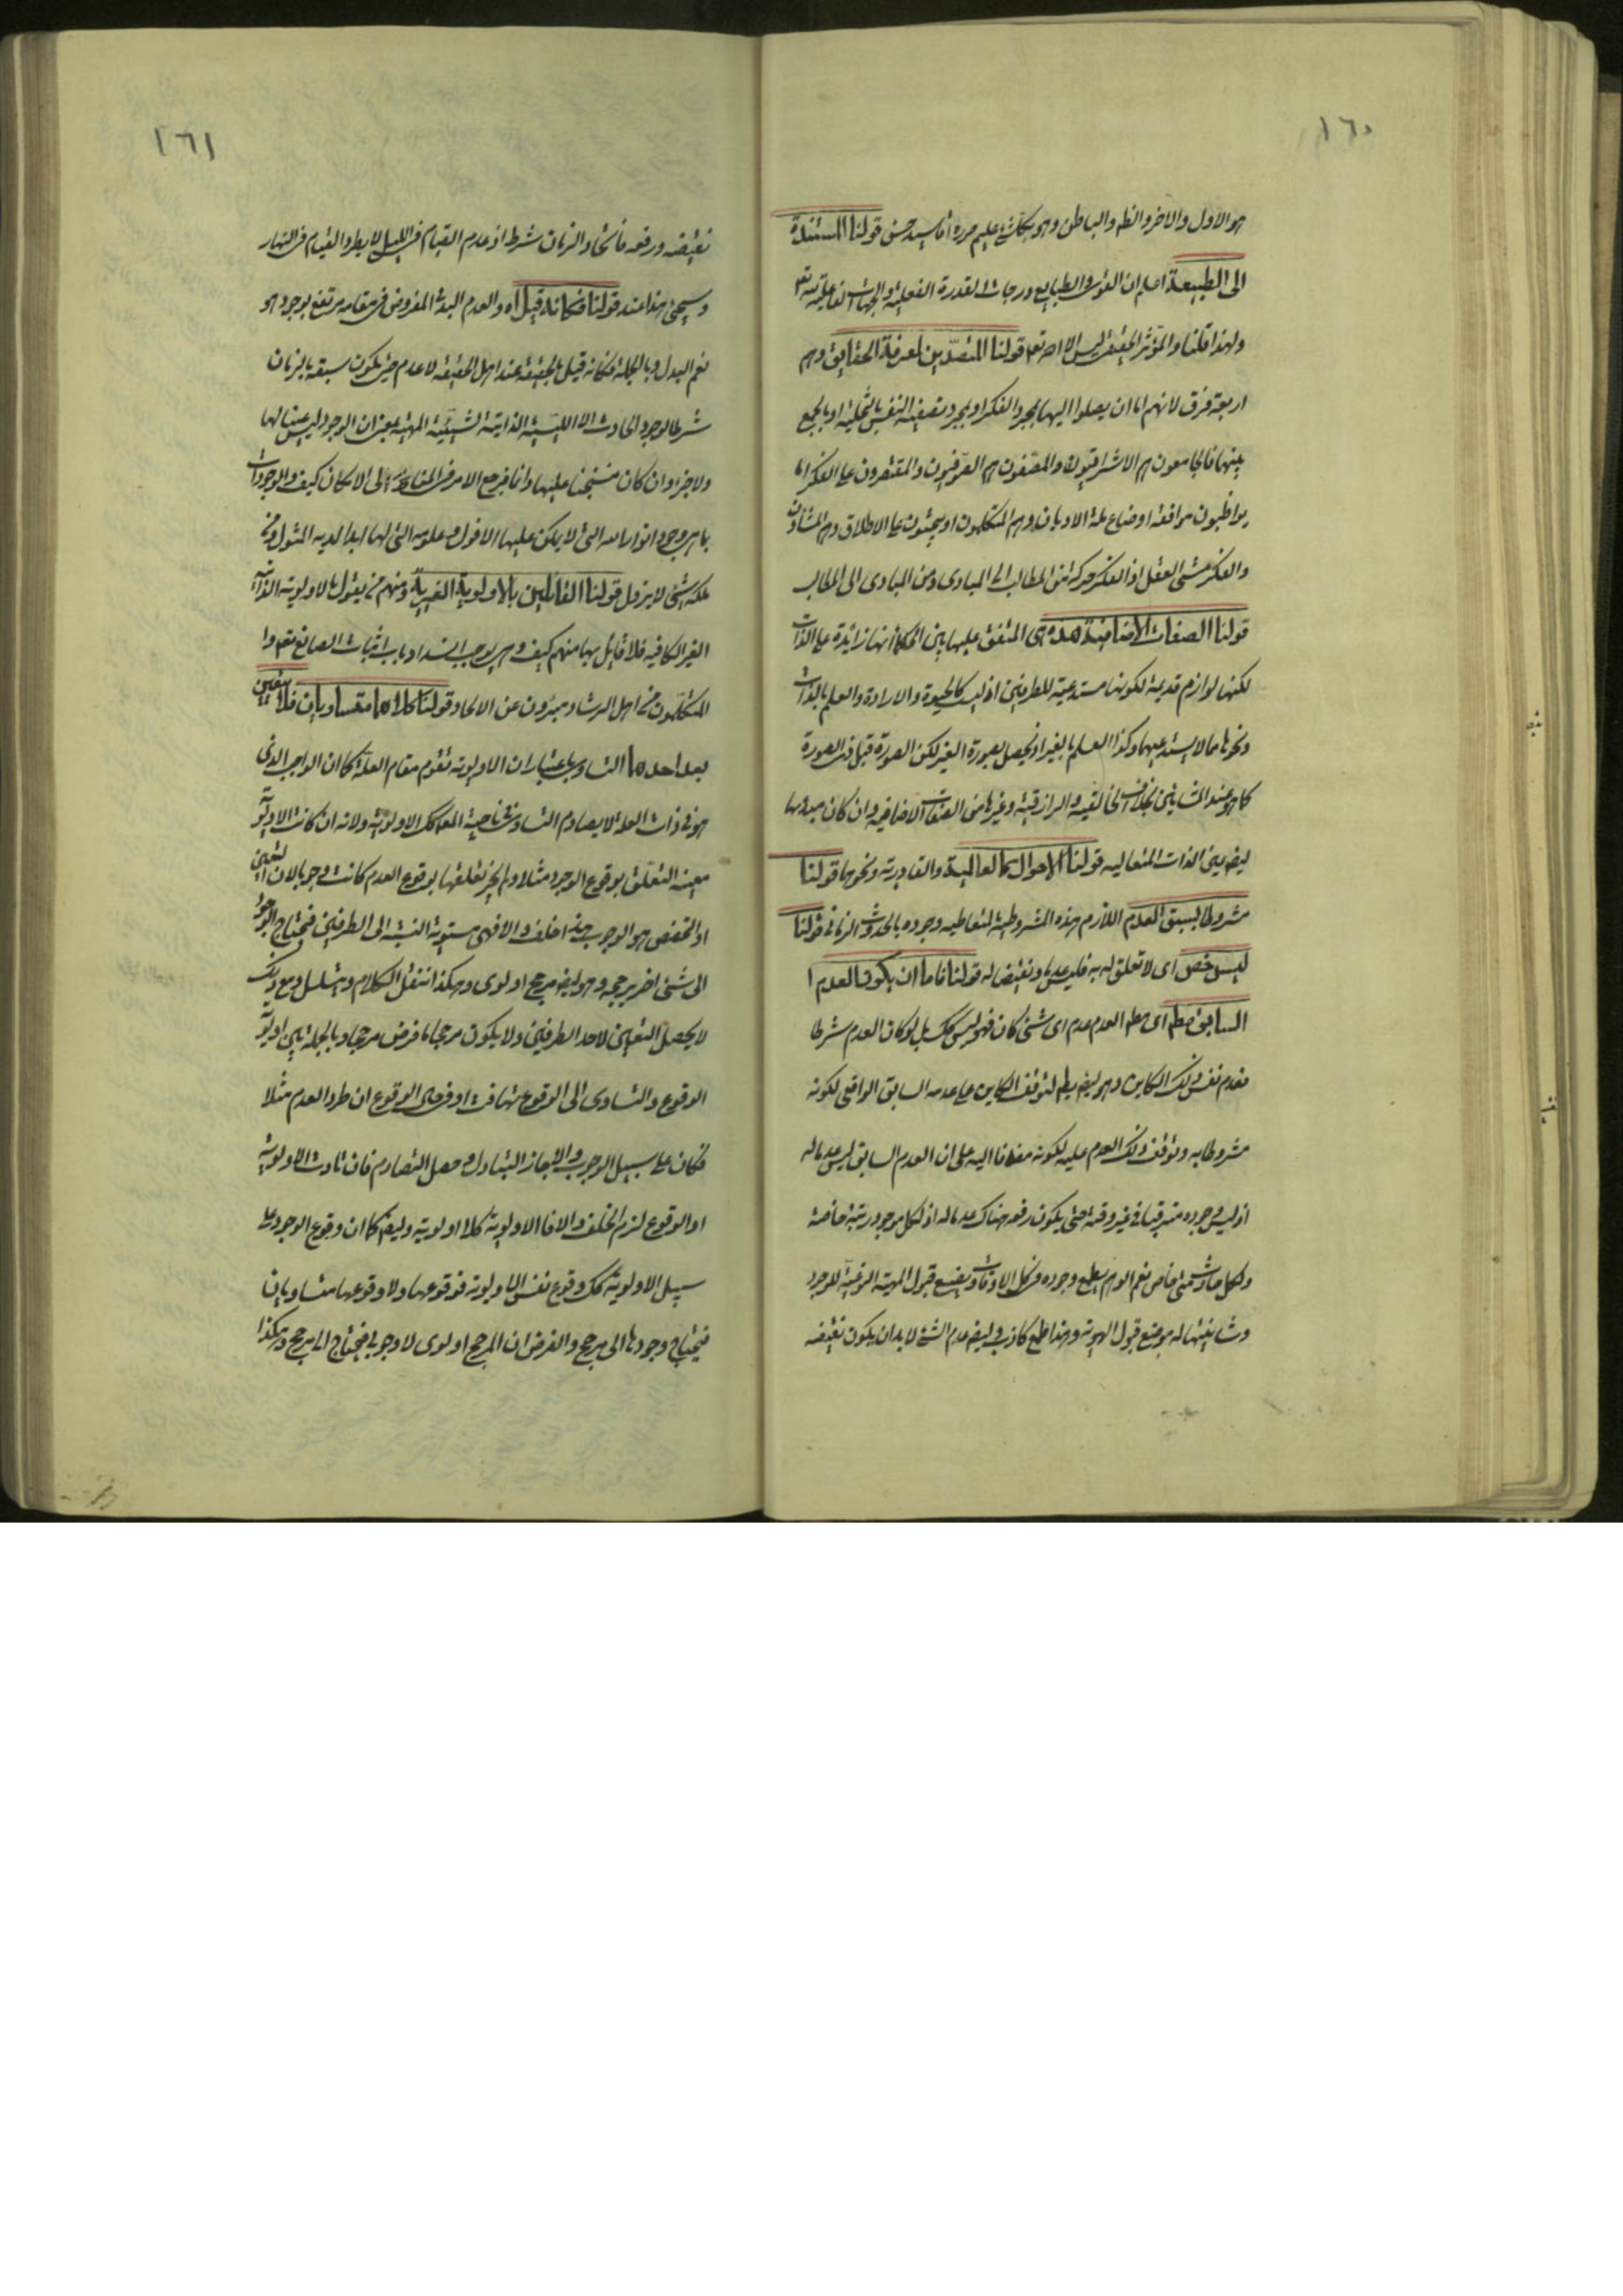 ١٦٠
هو الاول والاخر والظ والباطن وهو بكلشئ عليم حرره اقا سيد حسن قولنا المستندة
الى الطبيعة اعلم ان القوى والطبايع درجات القدرة الفعلية والجهات الفاعلية لله تع
ولهذا قلنا والمؤثر الحقيقى ليس الا الله تع قولنا المتصدين لمعرفة الحقايق وهم
اربعة فرق لانهم اما ان يصلوا اليها بمجرد الفكر او بمجرد تصفية النفس بالتخلية او بالجمع
بينهما فالجامعون هم الاشراقيون والمصفون هم الصوفيون والمقتصرون على الفكر اما
يواظبون موافقة اوضاع ملة الاديان وهم المتكلمون او يبحثون على الاطلاق وهم المشاؤن
والفكر مشى العقل اذ الفكر حركة من المطالب الى المبادى ومن المبادى الى المطالب
قولنا الصفات الاضافية هذه هى المتفق عليها بين الحكماء انها زائدة على الذات
لكنها لوازم قديمة لكونها مستدعية للطرفين اذ ليست كالحيوة والارادة والعلم بالذات
ونحوها مما لا يستدعيهما وكذا العلم بالغير اذ يحصل بصورة الغير لكن الصورة قبل ذى الصورة
كما هو عند المشائين بخلاف الخالقية والرازقية وغيرها من الصفات الاضافية وان كان مبدؤها
ايض عين الذات المتعاليه قولنا الاحوال كالعالمية والقادرية ونحوهما قولنا
مشروطا بسبق العدم اللازم لهذه المشروطية لتعاطيه وجوده بالحدوث الزمانى قولنا
ليس خص اى لا تعلق له به فليس عدما ونقيضا له قولنا فاما ان يكون العدم ا
السابق مطم اى مطم العدم عدم اى شئ كان فهو ليس كك بل لو كان العدم شرطا
فعدم نفس ذلك الكاين وهو ايض بط لتوقف الكاين على عدمه السابق الواقعى لكونه
مشروطا به وتوقف ذلك العدم عليه لكونه مضافا اليه على ان العدم السابق ليس عدما له
اذ ليس وجوده مترقبا فى غير وقته حتى يكون رفعه هناك عدما له اذ لكل موجود رتبة خاصة
ولكل حادث متى خاص نعم الوهم يطمع وجوده فى كل الاوقات ويضع قبول المهية النوعية للوجود
وشانيتها له موضع قبول الهوية وهذا طمع كاذب وايض عدم الشئ لابد ان يكون نقيضه
١٦١
نقيضه ورفعه فاتحاد الزمان شرط اذ عدم القيام فى الليل لا يطرد القيام فى النهار
وسيجئ هذا عند قولنا فكانه قيل اه والعدم البدل المفروض فى مقامه مرتفع بوجوده
نعم البدل وبالجملة فكانه قيل بالحقيقة عند اهل الحقيقة لا عدم حتى يكون سبقه بالزمان
شرطا لوجود الحادث الا الليسية الذاتية لشيئية المهية بمعنى ان الوجود ليس عينا لها
ولا جزءا وان كان منبسطا عليها وانما يرجع الامر فى المناط الى الامكان كيف والوجودات
بما هى وجود انوار الله التى لا يمكن عليها الافول وعلومه التى لها ابدا لديه المثول ومن
علمه شئ لا يزول قولنا القائلين بالاولوية الغيرية ومنهم من يقول بالاولوية الذاتية
الغير الكافية فلا قايل بها منهم كيف وهى يوجب انسداد باب اثبات الصانع تع و
المتكلمون من اهل الرشاد مبرؤن عن الالحاد قولنا كلاهما متساويان فلا يتعين
بعد احدهما التساوى باعتبار ان الاولوية تقوم مقام العلة كما ان الواجب الذى
هو فى ذات العلة لا يصادم التساوى فى ناحية المعلول كك الاولوية ولانه ان كانت الاولوية
معينة التعلق بوقوع الوجود مثلا ولم يجز تعلقها بوقوع العدم كانت وجوبا لان التعين
او التخصص هو الوجوب هذا خلف والا فهى مستوية النسبة الى الطرفين فيحتاج الوجود
الى شئ اخر يرجحه وهو ايضا مرجح اولوى وهكذا ننقل الكلام ويتسلسل ومع ذلك
لا يحصل التعين لاحد الطرفين ولا يكون مرجحا ما فرض مرجحا وبالجملة بين اولوية
الوقوع والتساوى الى الوقوع تهافت او فرض الوقوع ان طرد العدم مثلا
فكان على سبيل الوجوب والا جاز التبادل وحصل التصادم فان تادت الاولوية
او الوقوع لزم الخلف والا فالاولوية كلا اولوية وايض كما ان وقوع الوجود على
سبيل الاولوية كك وقوع نفس الاولوية فوقوعها ولا وقوعها متساويان
فيحتاج وجودها الى مرجح والفرض ان المرجح اولوى لا وجوبى فيحتاج الى مرجح وهكذا